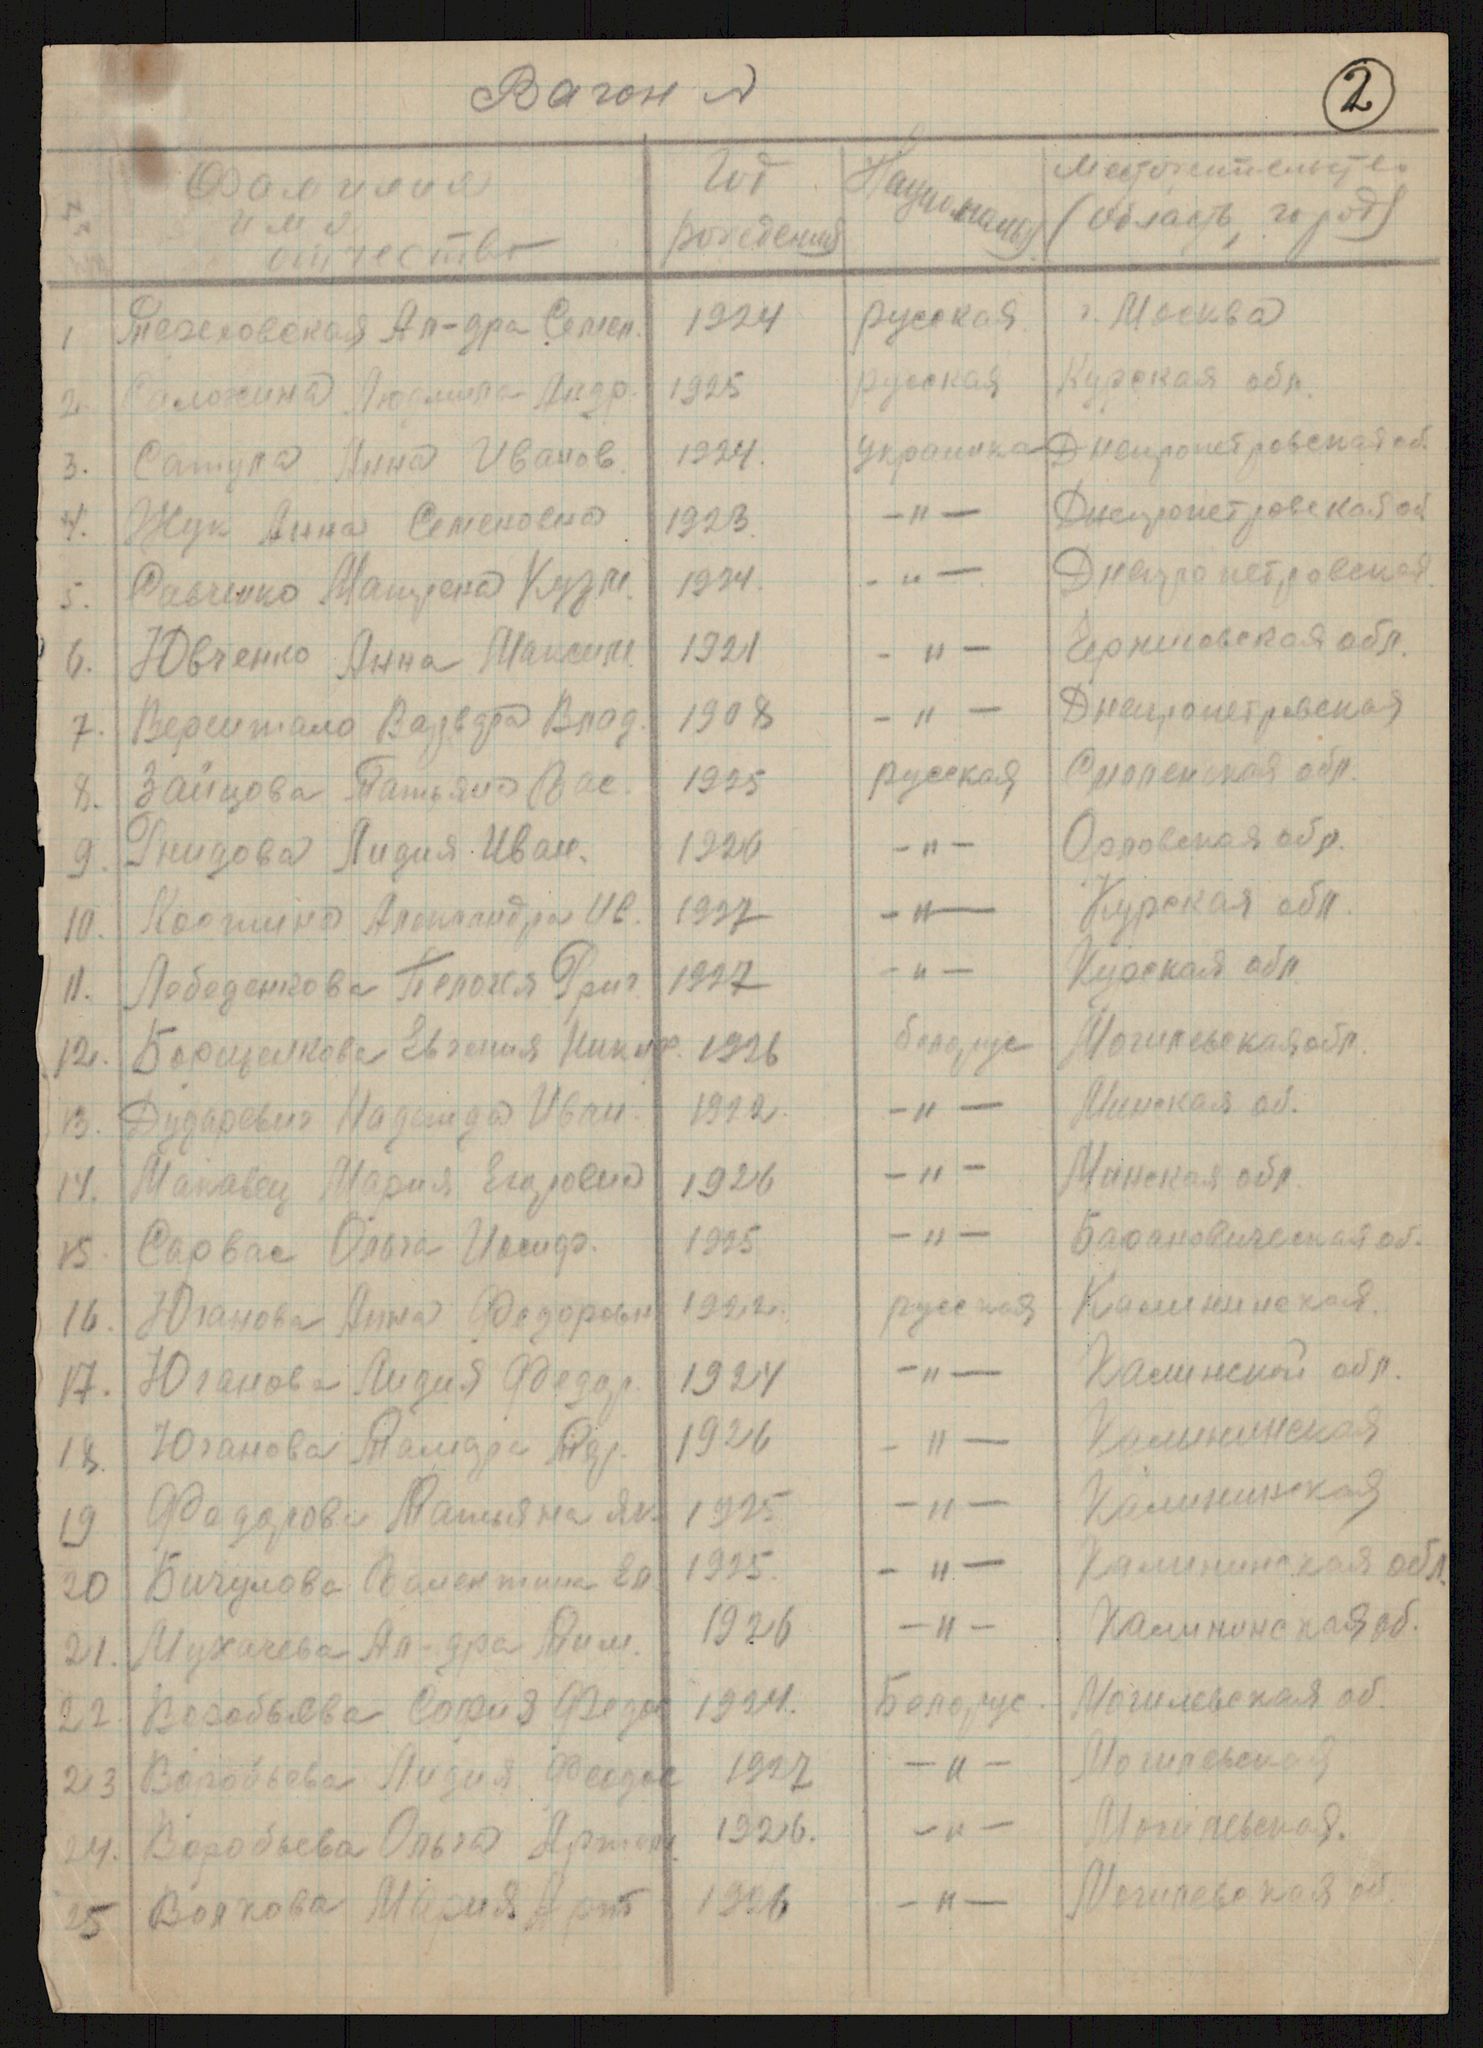 Вагон №
2
Фамилия имя отчество Год рождения Национальн Местожительство (область, город)
1 Ал-дра Семен. 1924 русская г. Москва
2. Саможина Людмила Андр. 1925 русская Курская обл.
3. Сатула Анна Иванов. 1924. украинка Днепропетровская об.
4. Жук Анна Семеновна 1923. -"- Днепропетровская об
5. Савченко Матрена Кузм. 1924. -"- Днепропетровская.
6. Ювченко Анна Максим. 1921 -"- Черниговская обл.
7. Влад. 1908 -"- Днепропетровская
8. Зайцова Татьяна Вас. 1925 русская Смоленская обл.
9. Гнидова Лидия Иван. 1926 -"- Орловская обл.
10. Костина Александра Ив. 1927 -"- Курская обл.
11. Лебеденкова Пелогея Григ. 1927 -"- Курская обл
12. Борщелкова Евгения Никиф. 1926 белорус Могилевская обл.
13. Дударевич Надежда Иван. 1922. -"- Минская об.
14. Макавец Мария Егоровна 1926 -"- Минская обл.
15. Сарвас Ольга Иосиф. 1925 -"- Барановическая об.
16. Юганова Анна Федоровн 1922. русская Калининская.
17. Юганова Лидия Федор. 1924 -"- Калинской обл.
18. Юганова 1926 -"- Калининская
19 Федорова Татьяна Як. 1925 -"- Калининская
20 Бичулова Валентина Ел. 1925. -"- Калининская обл.
21. Мухачева Ал-дра Тим. 1926 -"- Калининская об.
22. Воробьева София Федос 1924. Белорус. Могилевская об.
23 Воробьева Лидия Феодос 1927 -"- Могилевская
24. Воробьева Ольга Артем. 1926. -"- Могилевская.
25 Волкова Мария Арт 1926 -"- Могилевская об.